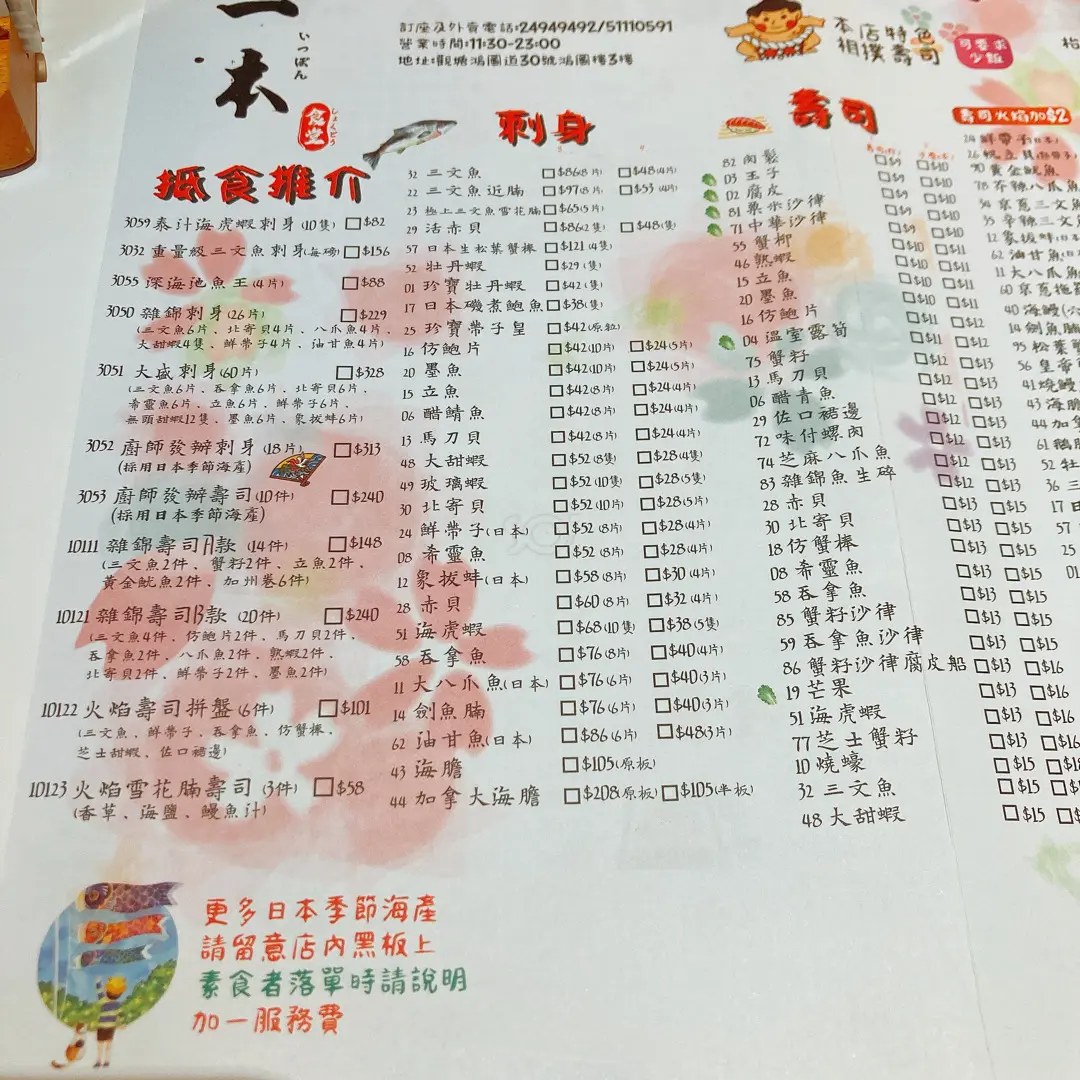 一本
いっぽん
食堂
しょくどう
訂座及外賣電話:24949492/51110591
營業時間:11:30-23:00
地址:觀塘鴻圖道30號鴻圖樓3樓
本店特色
相撲壽司
可要求
少飯
抵食推介
3059 泰汁海虎蝦刺身(10隻) $82
3032 重量級三文魚刺身(每磅) $156
3055 深海池魚王(4片) $88
3050 雜錦刺身(26片) $229
(三文魚6片、北寄貝4片、八爪魚4片、
大甜蝦4隻、鮮帶子4片、油甘魚4片)
3051 大盛刺身(60片) $328
(三文魚6片、吞拿魚6片、北寄貝6片、
希靈魚6片、立魚6片、鮮帶子6片、
無頭甜蝦12隻、墨魚6片、象拔蚌6片)
3052 廚師發辦刺身(18片) $313
(採用日本季節海產)
3053 廚師發辦壽司(10件) $240
(採用日本季節海產)
10111 雜錦壽司A款(14件) $148
(三文魚2件、蟹籽2件、立魚2件、
黃金魷魚2件、加州卷6件)
10121 雜錦壽司B款(20件) $240
(三文魚4件、仿鮑片2件、馬刀貝2件、
吞拿魚2件、八爪魚2件、熟蝦2件、
北寄貝2件、鮮帶子2件、墨魚2件)
10122 火焰壽司拼盤(6件) $101
(三文魚、鮮帶子、吞拿魚、仿蟹棒、
芝士甜蝦、佐口裙邊)
10123 火焰雪花腩壽司(3件) $58
(香草、海鹽、鰻魚汁)
刺身
32 三文魚 $86(8片) $48(4片)
22 三文魚近腩 $97(8片) $53(4片)
23 極上三文魚雪花腩 $65(5片)
29 活赤貝 $86(2隻) $48(1隻)
57 日本生松葉蟹棒 $121(4隻)
52 牡丹蝦 $29(隻)
01 珍寶牡丹蝦 $42(隻)
17 日本磯煮鮑魚 $38(隻)
25 珍寶帶子皇 $42(原粒)
16 仿鮑片 $42(10片) $24(5片)
20 墨魚 $42(10片) $24(5片)
15 立魚 $42(8片) $24(4片)
06 醋鯖魚 $42(8片) $24(4片)
13 馬刀貝 $42(8片) $24(4片)
48 大甜蝦 $52(8隻) $28(4隻)
49 玻璃蝦 $52(10隻) $28(5隻)
30 北寄貝 $52(10片) $28(5片)
24 鮮帶子(日本) $52(8片) $28(4片)
08 希靈魚 $52(8片) $28(4片)
12 象拔蚌(日本) $58(8片) $30(4片)
28 赤貝 $60(8片) $32(4片)
51 海虎蝦 $68(10隻) $38(5隻)
58 吞拿魚 $76(8片) $40(4片)
11 大八爪魚(日本) $76(6片) $40(3片)
14 劍魚腩 $76(6片) $40(3片)
62 油甘魚(日本) $86(6片) $48(3片)
43 海膽 $105(原板)
44 加拿大海膽 $208(原板) $105(半板)
壽司
82 肉鬆 $9 $10
03 玉子 $9 $10
02 腐皮 $9 $10
81 粟米沙律 $9 $10
71 中華沙律 $9 $10
55 蟹柳 $10 $11
46 熟蝦 $10 $11
15 立魚 $10 $11
20 墨魚 $10 $11
16 仿鮑片 $11 $12
04 溫室露筍 $11 $12
75 蟹籽 $12 $13
13 馬刀貝 $12 $13
06 醋青魚 $12 $13
29 佐口裙邊 $12 $13
72 味付螺肉 $12 $13
74 芝麻八爪魚 $12 $13
83 雜錦魚生碎 $12 $13
28 赤貝
30 北寄貝
18 仿蟹棒
08 希靈魚
58 吞拿魚
85 蟹籽沙律
59 吞拿魚沙律
86 蟹籽沙律腐皮船 $13 $16
19 芒果
51 海虎蝦
77 芝士蟹籽
10 燒蠔
32 三文魚
48 大甜蝦
壽司火焰加$2
更多日本季節海產
請留意店內黑板上
素食者落單時請說明
加一服務費